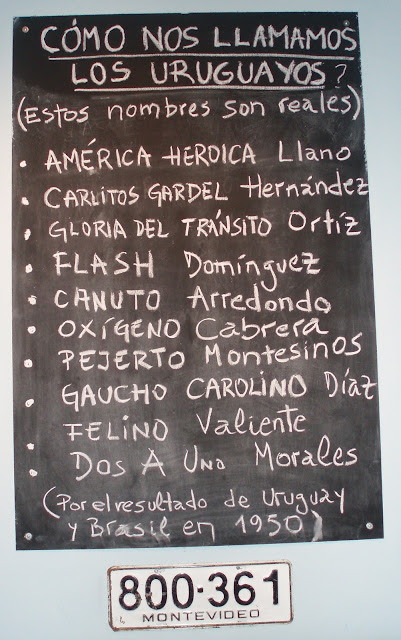 CÓMO NOS LLAMAMOS
LOS URUGUAYOS?
(Estos nombres son reales)
• AMÉRICA HEROICA Llano
• CARLITOS GARDEL Hernández
• GLORIA DEL TRÁNSITO Ortíz
• FLASH Domínguez
• CANUTO Arredondo
• OXÍGENO Cabrera
• PEJERTO Montesinos
• GAUCHO CAROLINO Díaz
• FELINO Valiente
• DOS A UNO Morales
(Por el resultado de Uruguay
y Brasil en 1950)
800·361
MONTEVIDEO